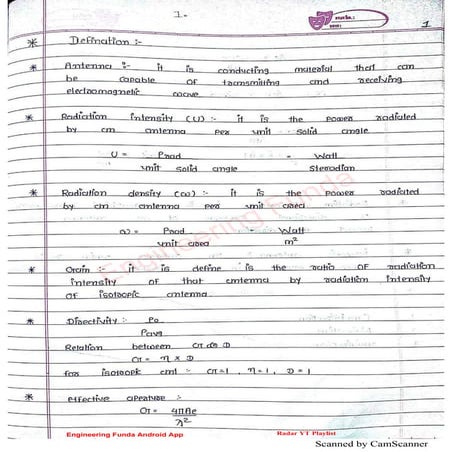 1.
1
* Defination :-
* Antenna :- it is conducting material that can
be capable of transmitting and receiving
electromagnetic wave
* Radiation intensity (U) :- it is the power radiated
by an antenna per unit solid angle
U = Prad = Watt
unit solid angle Steradian
* Radiation density (ω) :- it is the power radiated
by an antenna per unit area
ω = Prad = Watt
unit area m²
* Gain :- it is define is the ratio of radiation
intensity of that antenna by radiation intensity
of isotropic antenna.
* Directivity :- Po
Pavg
Relation between G D
G = η × D
for isotropic ant : G = 1, η = 1, D = 1
* effective aperture :-
G = 4πAe
λ²
Engineering Funda
Engineering Funda Android App Radar YT Playlist
Scanned by CamScanner